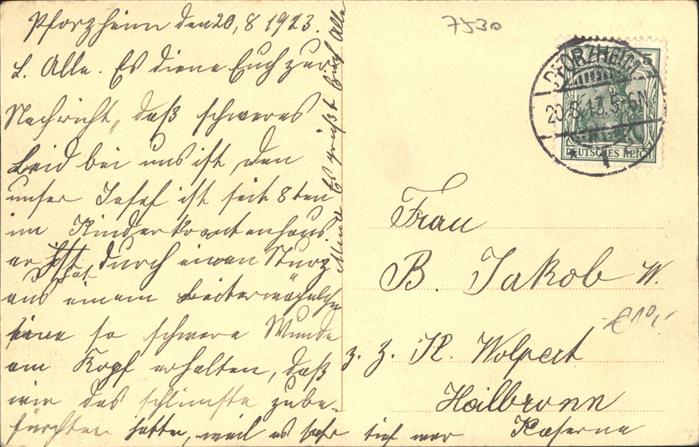 Pforzheim den 20,8 1913.
L. Alle. Es diene Euch zur
Nachricht, daß schweres
Leid bei uns ist, den
unser Josef ist seit 8 ten
im Kinderkrankenhaus
er hat durch einen Sturz
aus einem Leiterwägelchen
eine so schwere Wunde
am Kopf erhalten, daß
wir das schlimste zube-
fürchten hatten, weil es sehr tief war
Es grüßt Euch Alle
7530
PFORZHEIM
20.8.13.5-6N
1
5
DEUTSCHES REICH
Frau
B. Jakob W.
z. Z. K. Wolpert
Heilbronn
Kaserne
€10,-